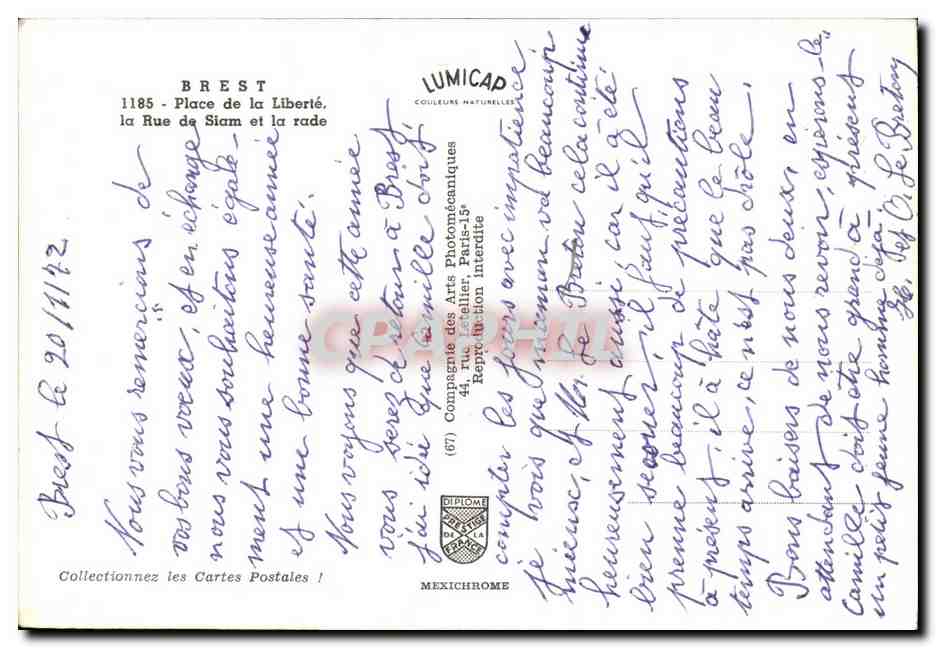 BREST
1185 - Place de la Liberté,
la Rue de Siam et la rade
LUMICAP
COULEURS NATURELLES
Brest le 20/1/72
Nous vous remercions de
vos bons voeux, et en échange
nous vous souhaitons égale-
ment une heureuse année
et une bonne santé.
Nous voyons que cette année
vous serez de retour à Brest
j'ai idée que Camille doit
compter les jours avec impatience
je vois que maman va beaucoup
mieux, et Mr Le Breton cela continue
heureusement aussi car il a été
bien secoué il faut qu'il
prenne beaucoup de précautions
à présent, il à hâte que le beau
temps arrive, ce n'est pas drôle.
Bons baisers de nous deux, en
attendant de nous revoir,
Camille doit être grand à présent
un petit jeune homme déja.
Le Bretony
(67) Compagnie des Arts Photomécaniques
44, rue Letellier, Paris-15e
Reproduction interdite
DIPLOME
PRESTIGE
DE LA
FRANCE
MEXICHROME
Collectionnez les Cartes Postales !
CPAPHIL